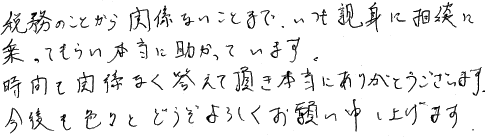 税務のことから関係ないことまで、いつも親身に相談に
乗ってもらい本当に助かっています。
時間も関係なく答えて頂き本当にありがとうございます。
今後も色々とどうぞよろしくお願い申し上げます。